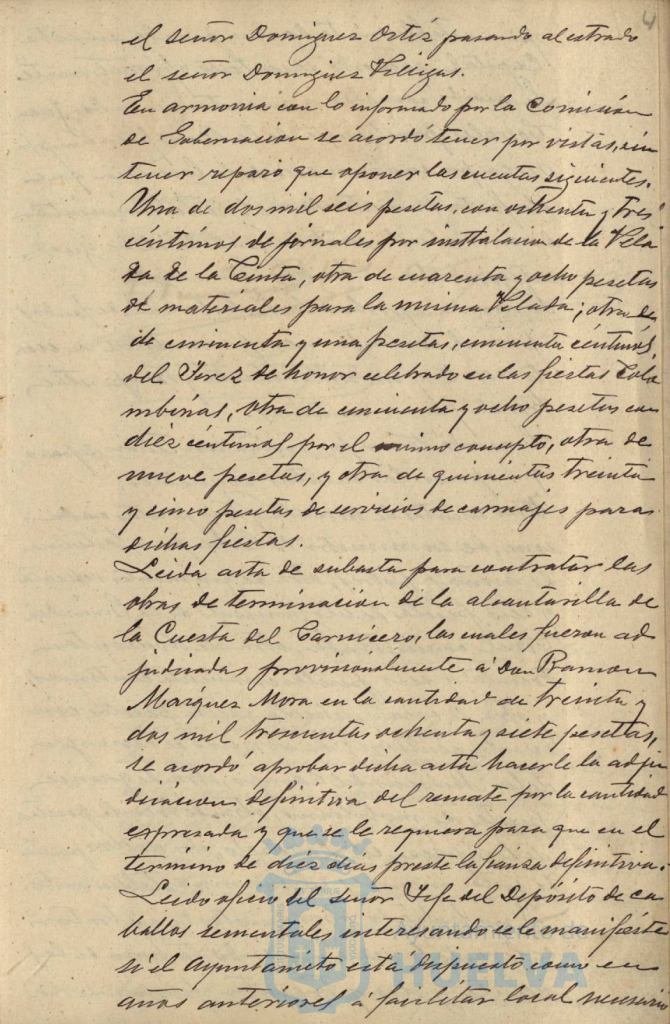 4
el señor Dominguez Ortiz pasando al estrado
el señor Dominguez Villegas.
En armonia con lo informado por la Comisión
de Gobernacion se acordó tener por vistas, sin
tener reparo que oponer las cuentas siguientes.
Una de dos mil seis pesetas, con ochenta y tres
céntimos de jornales por insttalacion de la Vela
da de la Cinta, otra de cuarenta y ocho pesetas
de materiales para la misma Velada; otra de
de cincuenta y una pesetas, cincuenta céntimos
del Jerez de honor celebrado en las fiestas Colo
mbinas, otra de cincuenta y ocho pesetas con
diez céntimos por el mismo concepto, otra de
nueve pesetas, y otra de quinientas treinta
y cinco pesetas de servicios de carruajes para
dichas fiestas.
Leida acta de subasta para contratar las
obras de terminación de la alcantarilla de
la Cuesta del Carnicero, las cuales fueron ad
judicadas provisionalmente á Don Ramon
Marquez Mora en la cantidad de treinta y
dos mil trescientas ochenta y siete pesetas,
se acordó aprobar dicha acta hacerle la adju
dicacion definitiva del remate por la cantidad
expresada y que se le requiera para que en el
termino de diez dias preste la fianza definitiva.
Leido oficio del señor Jefe del Depósito de ca
ballos sementales interesando se le manifieste
si el Ayuntamiento está dispuesto como en
años anteriores á facilitar local necesario
HUELVA